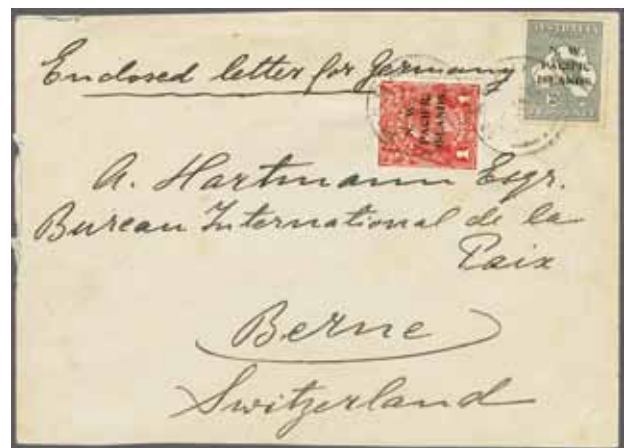 Enclosed letter for Germany
AUSTRALIA
N. W.
PACIFIC
ISLANDS.
N. W.
PACIFIC
ISLANDS.
1 1
A. Hartmann Esqr.
Bureau International de la
Paix
Berne
Switzerland